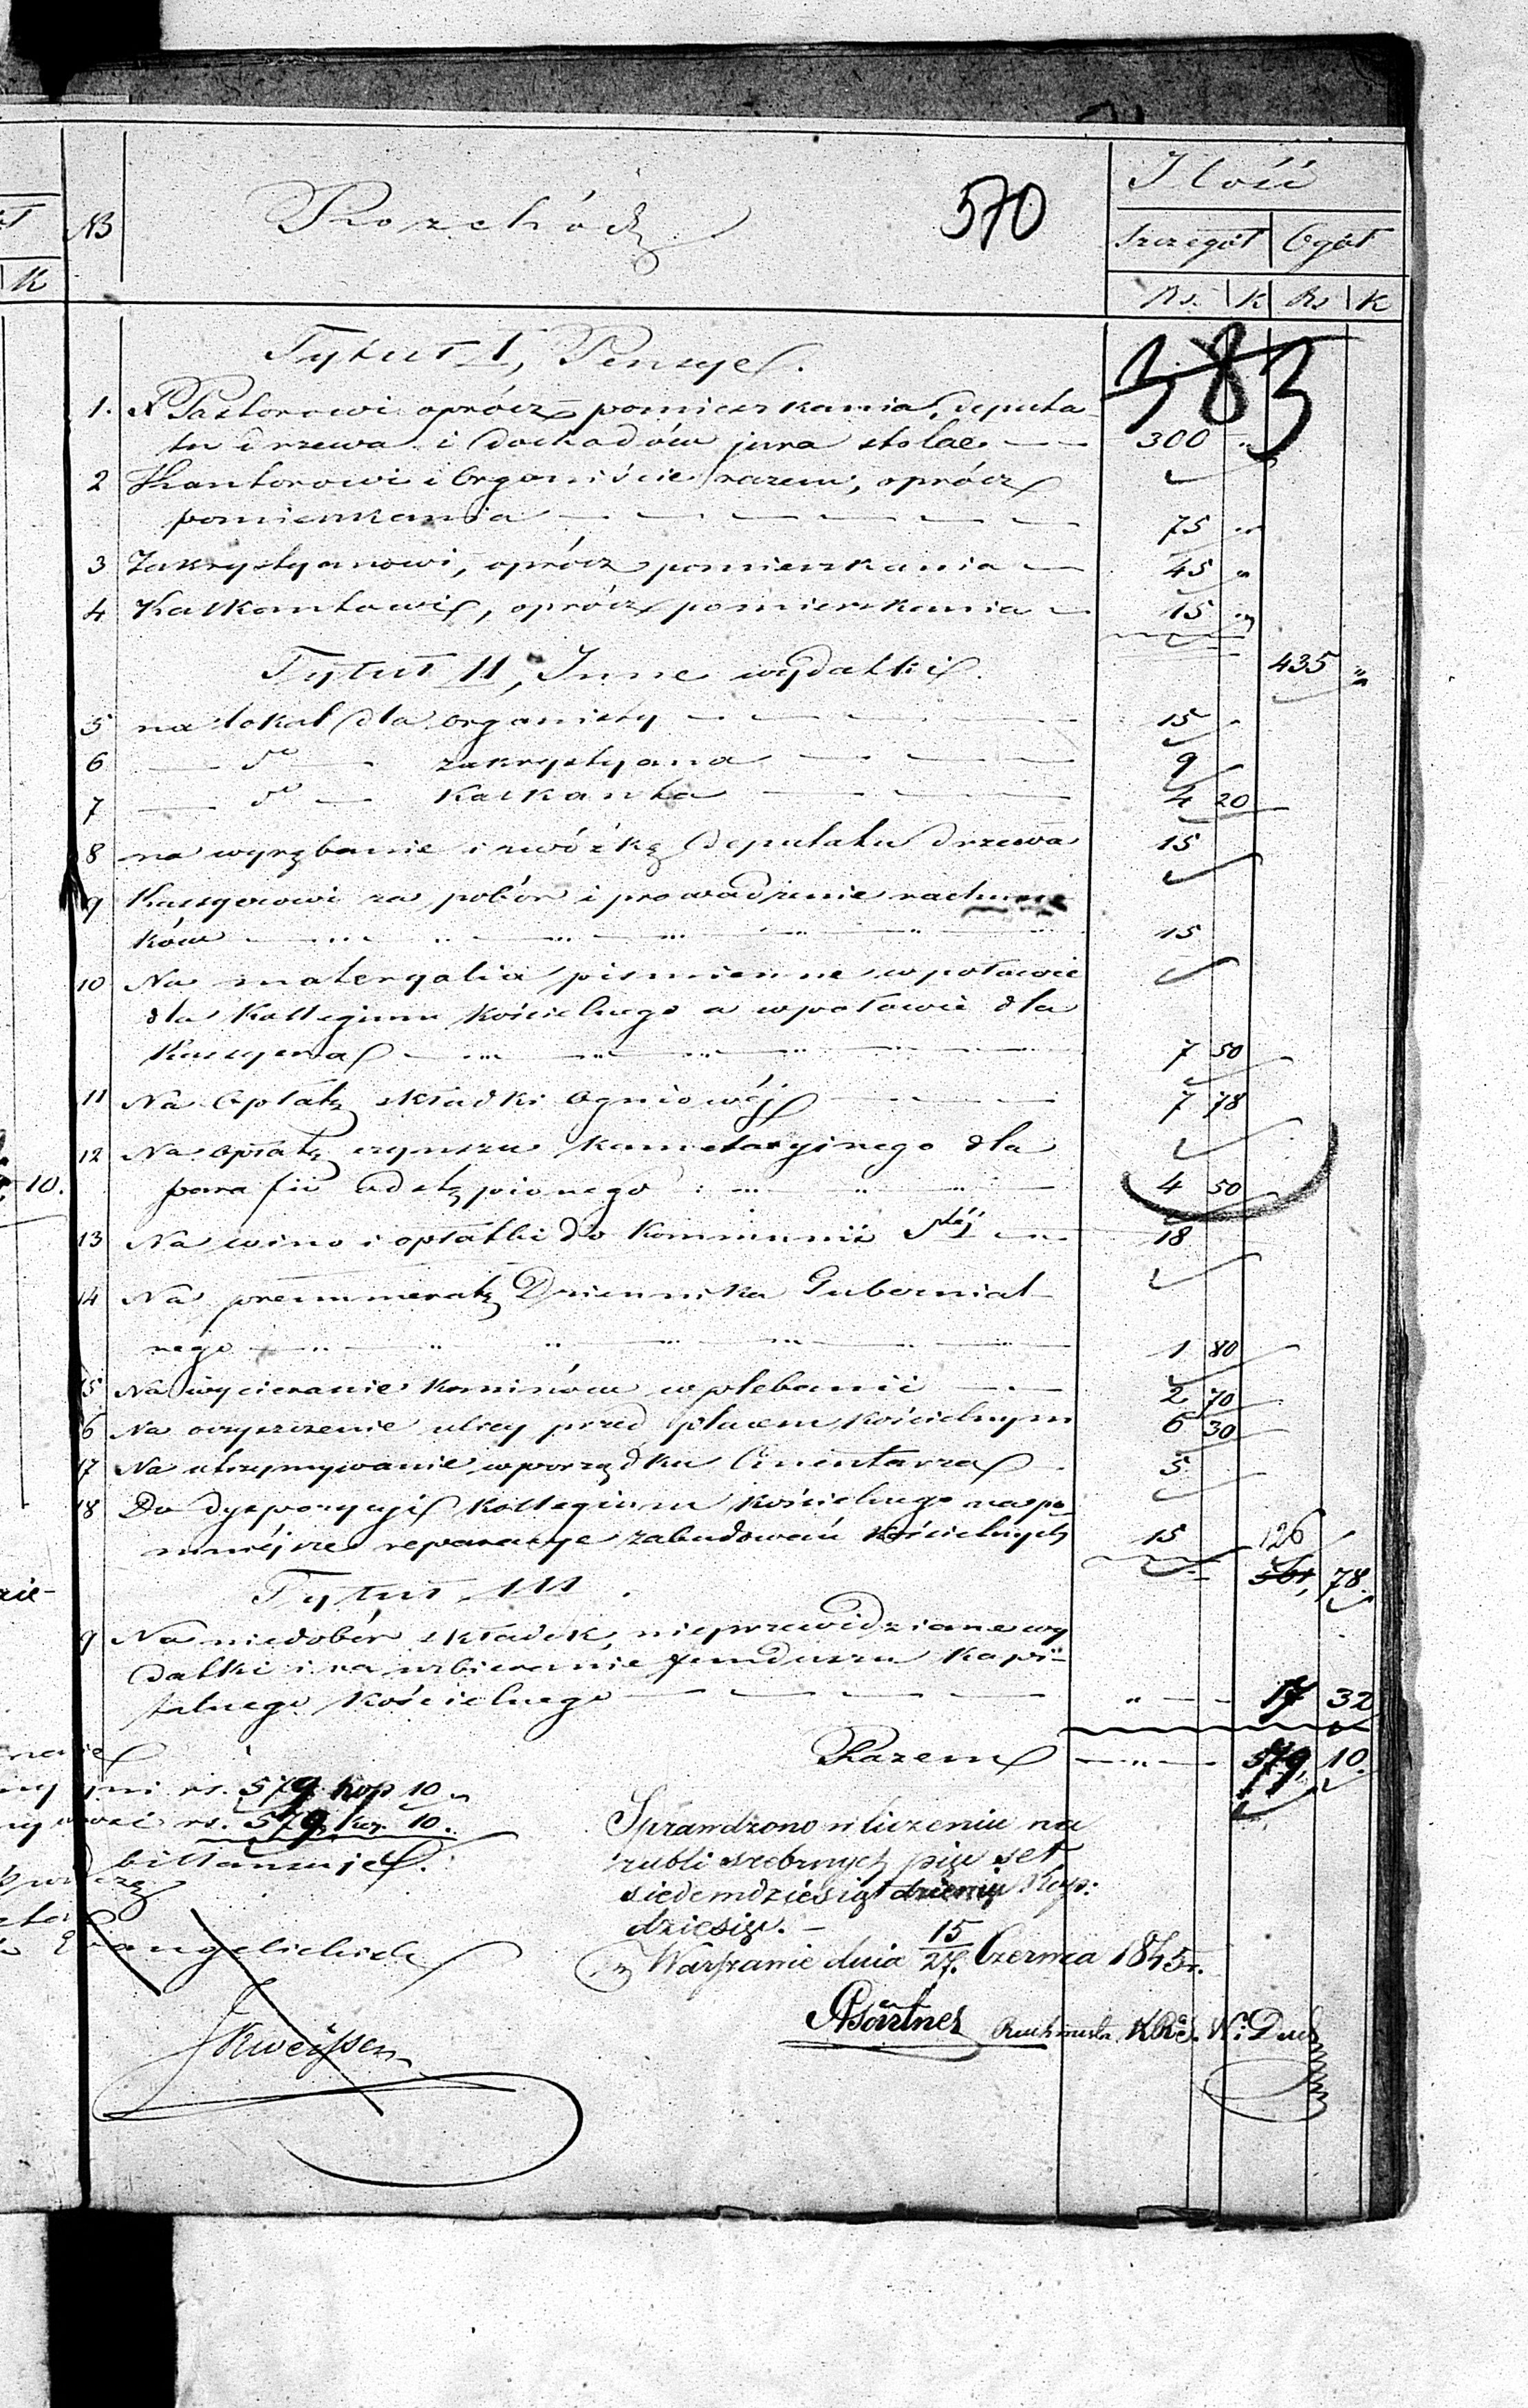 № Rozchód 570 Ilość
Szczegół Ogół
K Rs. K Rs K
383
Tytuł I, Pensye.
1. X Pastorowi oprócz pomieszkania, deputa-
tu drzewa i dochodów jura stolae 300 "
2 Kantorowi i Organiście razem, oprócz
pomieszkania 75 "
3 Zakrystyanowi, oprócz pomieszkania 45 "
4 Kalkantowi, oprócz pomieszkania 15 "
435 "
Tytuł II, Inne wydatki.
5 na lokal dla organisty 15
6 — do — zakrystyana 9
7 — do — Kalkanta 4 20
8 na wyrąbanie i zwózkę deputatu drzewa 15
9 Kassyerowi za pobór i prowadzenie rachun-
ków 15
10 Na materyalia piśmienne w połowie
dla Kollegium Kościelnego a w połowie dla
Kassyera 7 50
11 Na Opłatę składki Ogniowéj 7 78
12 Na opłatę czynszu kameralnego dla
10. parafii odstąpionego 4 50
13 Na wino i opłatki do Kommunii Stéj 18
14 Na prenumeratę Dziennika Gubernial-
nego 1 80
15 Na wycieranie kominów w plebanii 2 70
16 Na oczyszczenie ulicy przed placem kościelnym 6 30
17 Na utrzymywanie w porządku Cmentarza 5
18 Do dyspozycyi Kollegium Kościelnego na po-
mniejsze reparacye zabudowań Kościelnych 15 126
561, 78.
Tytuł III.
9 Na niedobór składek, nieprzewidziane wy
datki i na uzbieranie funduszu Kapi-
talnego Kościelnego " 17 32
Razem 579, 10.
rs. 579 kop 10
rs. 579 kop. 10.
billansuje.
Ewangelickich
Sprawdzono w liczeniu na
rubli srebrnych pięć set
siedemdziesiąt dziewięć Kop:
dziesięć. —
w Warszawie dnia 15/27. Czerwca 1845 r.